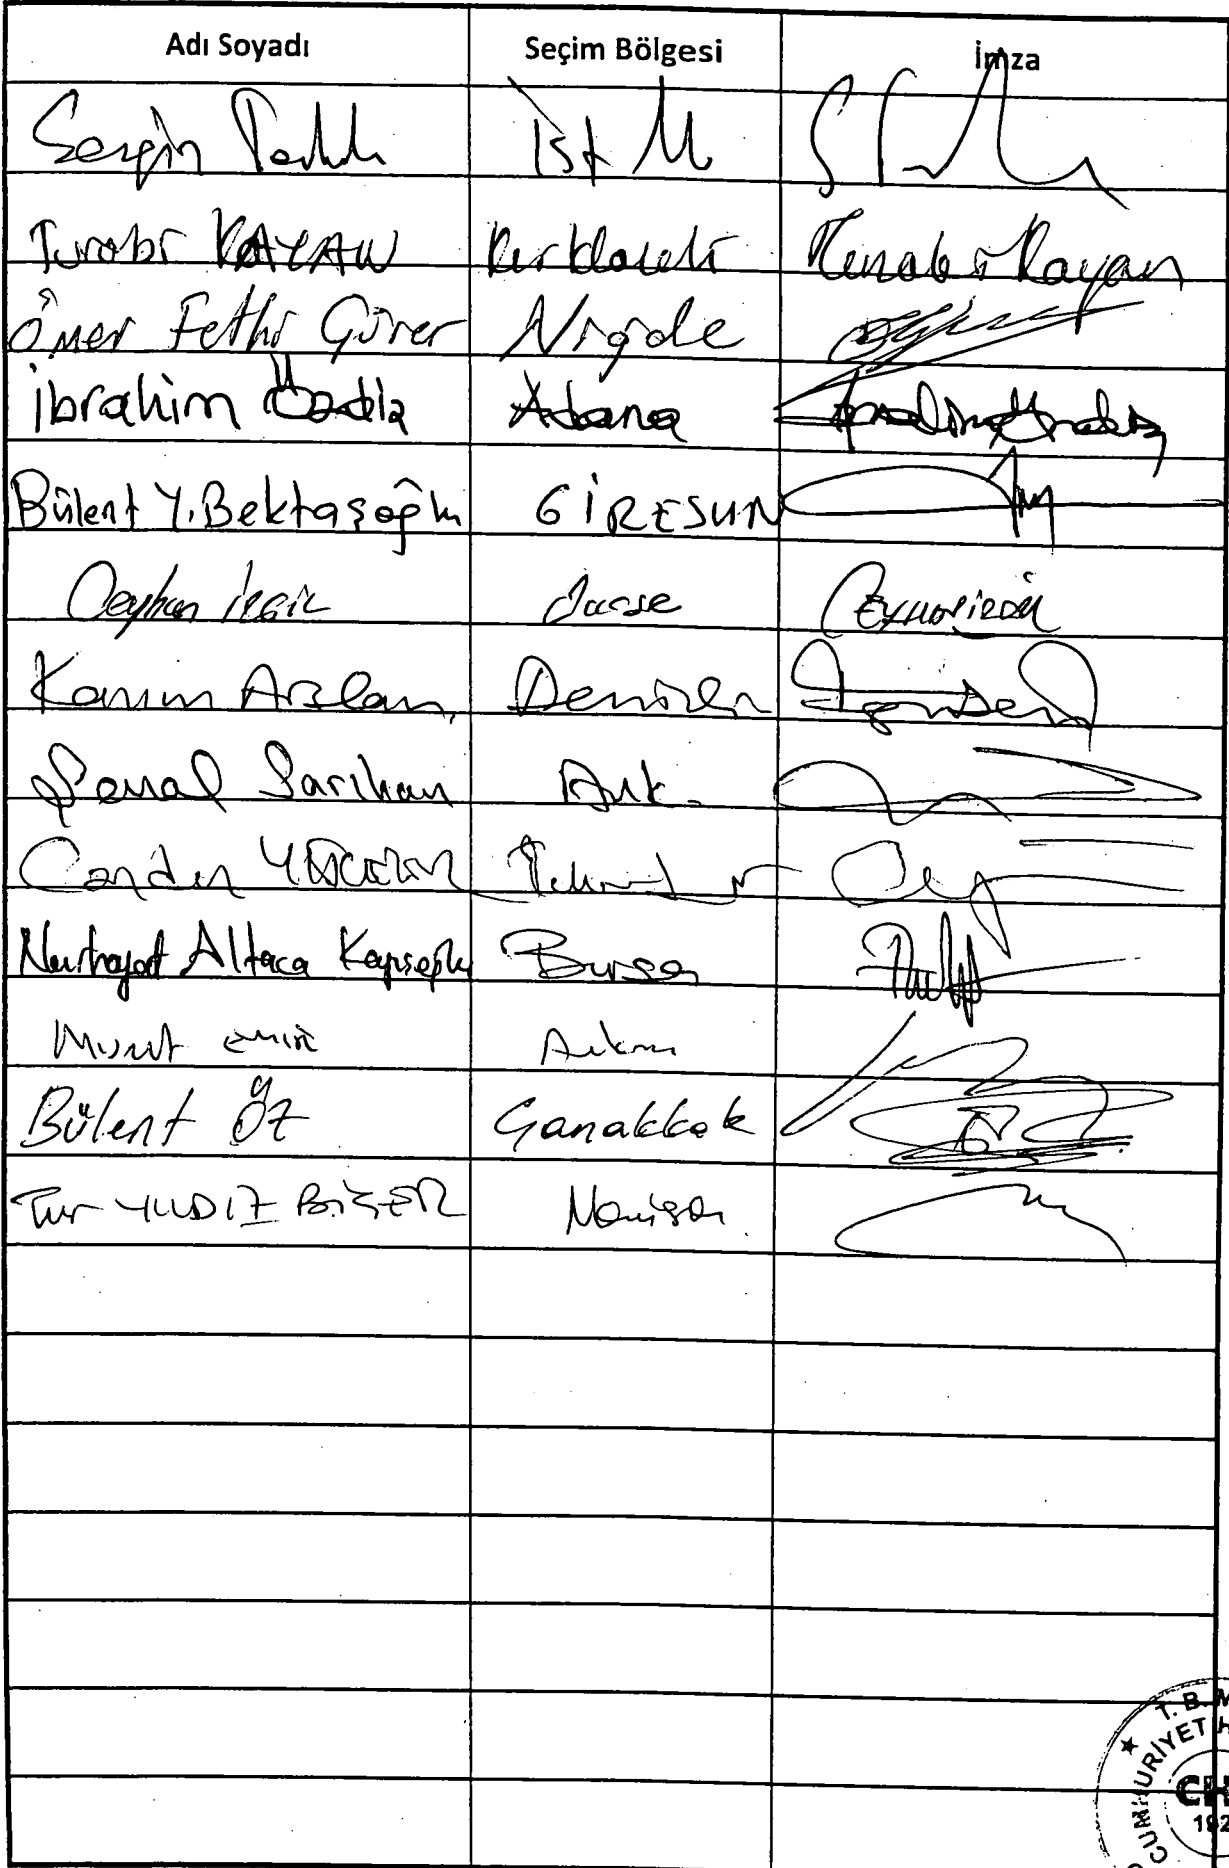 Adı Soyadı Seçim Bölgesi İmza
Sezgin İst
Turabi KAYAN Kırklareli Turabi Kayan
Ömer Fethi Gürer Niğde
İbrahim Özdiş Adana
Bülent Y. Bektaşoğlu GİRESUN
Ceyhun İrgil
Kazım Arslan Denizli
Şenal Sarıhan Ank.
Candan YÜCEER
Nurhayat Altaca Kayışoğlu Bursa
Murat Emir Ankara
Bülent ÖZ Çanakkale
Tur YILDIZ BİÇER Manisa
T. B. M
CUMHURİYET H
CH
192